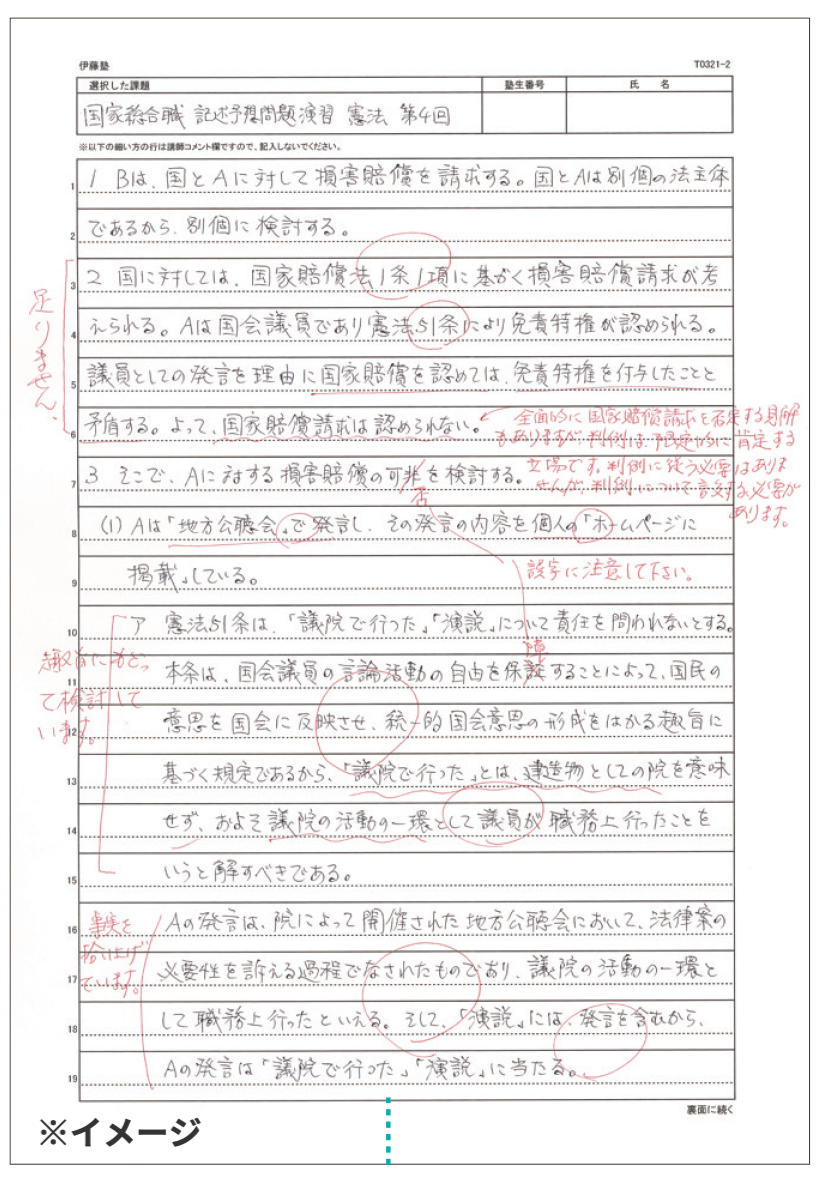 伊藤塾
T0321-2
選択した課題
塾生番号
氏 名
国家総合職 記述予想問題演習 憲法 第4回
※以下の細い方の行は講師コメント欄ですので、記入しないでください。
1 1 Bは、国とAに対して損害賠償を請求する。国とAは別個の法主体
2 であるから、別個に検討する。
3 2 国に対しては、国家賠償法1条1項に基づく損害賠償請求が考
足りません。
4 えられる。Aは国会議員であり憲法51条により免責特権が認められる。
5 議員としての発言を理由に国家賠償を認めては、免責特権を付与したことと
6 矛盾する。よって、国家賠償請求は認められない。
全面的に国家賠償請求を否定する見解
もありますが、判例は、限定的に肯定する
立場です。判例に従う必要はありま
せんが、判例について言及する必要が
あります。
7 3 そこで、Aに対する損害賠償の可非を検討する。
否
8 (1) Aは「地方公聴会」で発言し、その発言の内容を個人の「ホームページに
9 掲載」している。
誤字に注意して下さい。
10 ア 憲法51条は、「議院で行った」「演説」について責任を問われないとする。
障
11 本条は、国会議員の言論活動の自由を保証することによって、国民の
趣旨にもどっ
て検討して
います。
12 意思を国会に反映させ、統一的国会意思の形成をはかる趣旨に
13 基づく規定であるから、「議院で行った」とは、建造物としての院を意味
14 せず、およそ議院の活動の一環として議員が職務上行ったことを
15 いうと解すべきである。
16 Aの発言は、院によって開催された地方公聴会において、法律案の
事実を
拾い上げ
ています。
17 必要性を訴える過程でなされたものであり、議院の活動の一環と
18 して職務上行ったといえる。そして、「演説」には、発言を含むから、
19 Aの発言は「議院で行った」「演説」に当たる。
裏面に続く
※イメージ